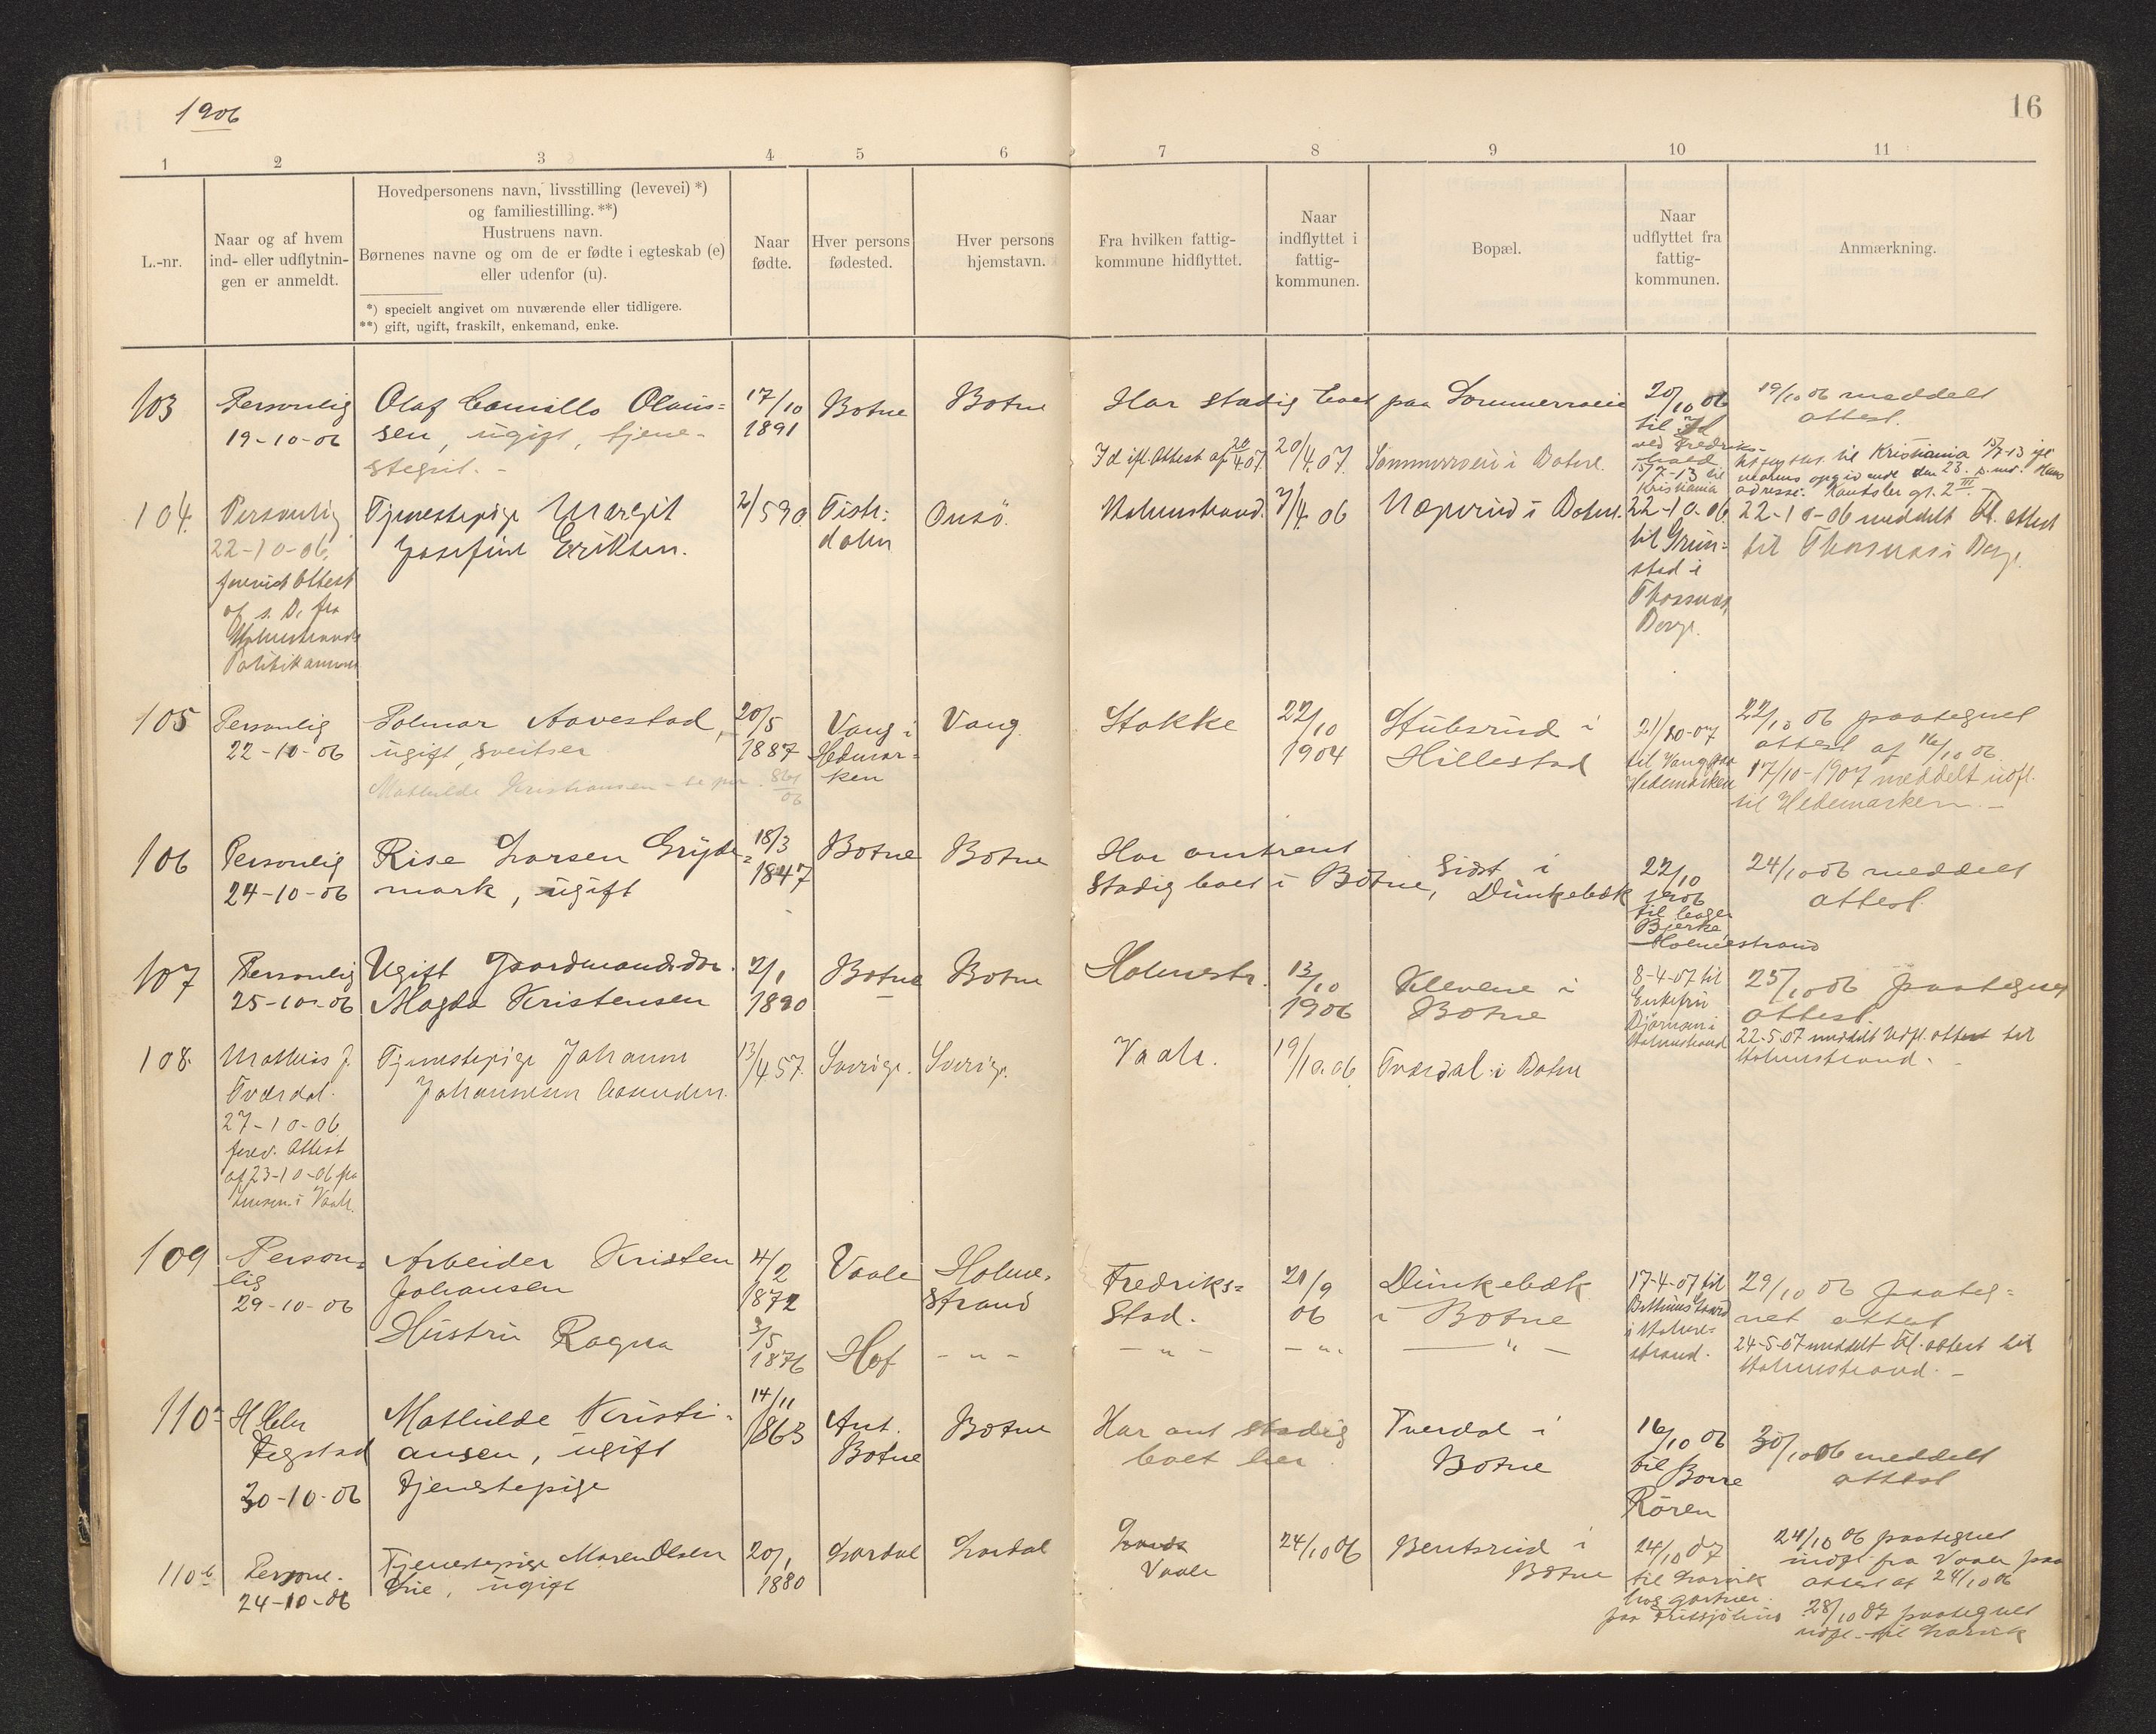 1906
16
1 2 3 4 5 6 7 8 9 10 11
L.-nr.
Naar og af hvem
ind- eller udflytnin-
gen er anmeldt.
Hovedpersonens navn, livsstilling (levevei) *)
og familiestilling. **)
Hustruens navn.
Børnenes navne og om de er fødte i egteskab (e)
eller udenfor (u).
*) specielt angivet om nuværende eller tidligere.
**) gift, ugift, fraskilt, enkemand, enke.
Naar
fødte.
Hver persons
fødested.
Hver persons
hjemstavn.
Fra hvilken fattig-
kommune hidflyttet.
Naar
indflyttet i
fattig-
kommunen.
Bopæl.
Naar
udflyttet fra
fattig-
kommunen.
Anmærkning.
103
Personlig
19-10-06
Olaf Camillo Olaus=
sen, ugift, tjene-
stegut. -
17/10
1891
Botne
Botne
Har stadig boet paa Sommerroen
Id ifl. Attest af 20/4.07.
20/4.07.
Sommerroen i Botne.
20/10 06
til Id
ved Fredriks-
hald
15/7-13 til
Kristiania
19/10 06 meddelt
attest.
til Kristiania 15/7-13
opgivende den 23.
adresse:
104.
Personlig
22-10-06,
forevist Attest
af s. D. fra
Holmestrands
Politikammer
Tjenestepige Margit
Josefine Eriksen.
2/5 90
Fisk:
dalen
Onsö.
Holmestrand.
3/4 06
Næperud i Botne.
22-10-06
til Grim=
stad i
Thorsnæs,
Borge.
22-10-06 meddelt Fl. attest
til Thorsnæs i Borge.
105
Personlig
22-10-06
Polmar Aavestad,
ugift, sveitser
Mathilde Kristiansen - se
20/5
1887
Vang i
Hedmar=
ken
Vang
Stokke
22/10
1904
Stubsrud i
Hillestad
21/10-07
til Vang paa
Hedemarken
22/10 06 paategnet
attest af 16/10 06.
17/10-1907 meddelt udfl.
til Hedemarken. -
106
Personlig
24-10-06
Rise Larsen Gryde=
mark, ugift
18/3
1847
Botne
Botne
Har omtrent
stadig boet i Botne,
sidst i
Dunkebæk
22/10
1906
til
Bjerke,
Holmestrand
24/10 06 meddelt
attest.
107
Personlig
25-10-06
Ugift Gaardmandsdtr.
Magda Kristensen
2/1
1890
Botne
Botne
Holmestr.
13/10
1906
Klevene i
Botne
8-4-07 til
Enkefru
Bjørnsen i
Holmestrand
25/10 06 paategnet
attest.
22-5-07 meddelt Udfl. attest til
Holmestrand. -
108.
Mathias J.
Tværdal.
27-10-06
forev. Attest
af 23-10-06 fra
Lensm. i Vaale.
Tjenestepige Johanne
Johannesen Aasenden.
13/4 57.
Sverige.
Sverige.
Vaale.
19/10.06.
Tværdal i Botne
109
Person=
lig
29-10-06
Arbeider Kristen
Johansen
Hustru Ragna
4/2
1872
3/5
1876
Vaale
Hof
Holme-
strand
- " -
Fredriks=
stad.
- " -
21/9
06
- " -
Dunkebæk
i Botne
- " -
17-4-07 til
i Holme-
strand.
29/10 06 paateg=
net attest
24-5-07 meddelt Fl. attest til
Holmestrand. -
110a
H. Heler
Fegstad
30-10-06
Mathilde Kristi-
ansen, ugift
Tjenestepige
14/11
1863
Ant.
Botne
Botne
Har omt stadig
boet her.
Tverdal i
Botne
16/10 06
til Borre
Røren
30/10 06 meddelt
attest
110b
Persone-
24-10-06
Tjenestepige Maren Olsen
Lie, ugift
20/1
1880
Lardal
Lardal
Vaale
24/10 06
Bentsrud i
Botne
24/10 07
til Larvik
hos gartner
paa Fritsjøhus
24/10 06 paategnet
indfl. fra Vaale paa
attest af 24/10 06
28/10 07 paategnet
udfl. til Larvik